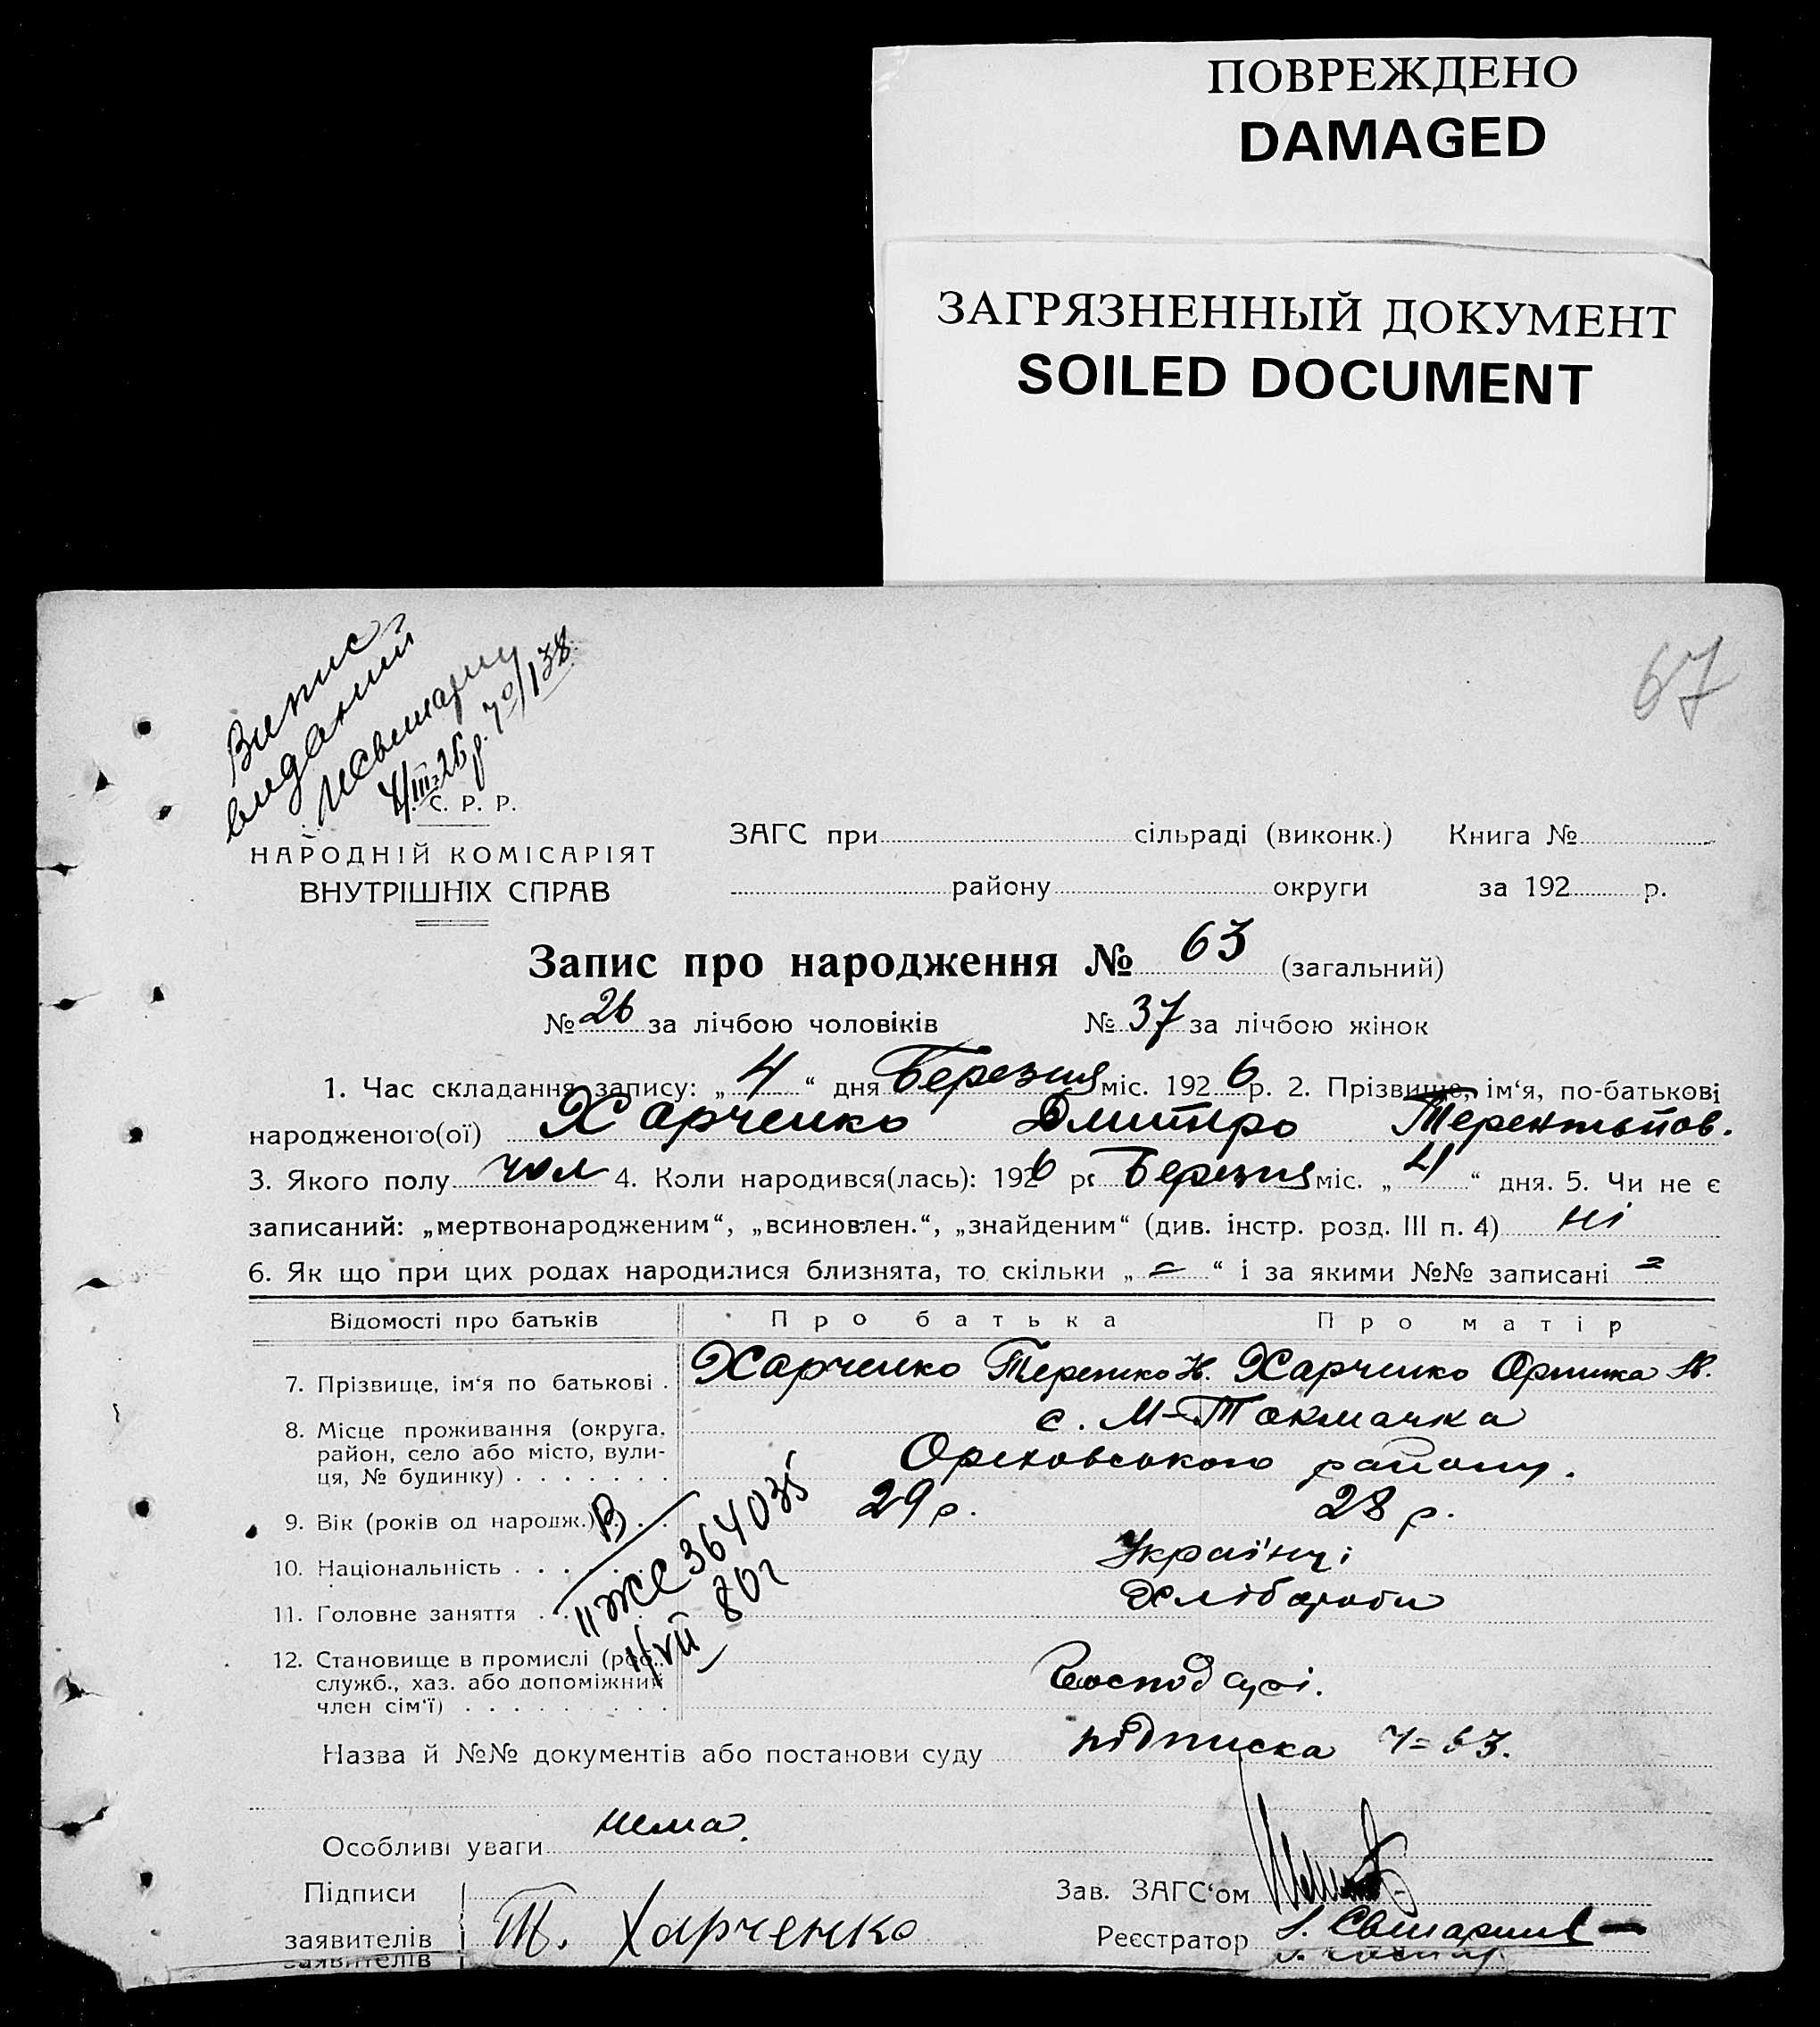 ПОВРЕЖДЕНО
DAMAGED
ЗАГРЯЗНЕННЫЙ ДОКУМЕНТ
SOILED DOCUMENT
Випис
виданий
4/III-26 р. 70/138
67
С. Р. Р.
НАРОДНІЙ КОМІСАРІЯТ
ВНУТРІШНІХ СПРАВ
ЗАГС при сільраді (виконк.) Книга №
району округи за 192 р.
Запис про народження № 63 (загальний)
№ 26 за лічбою чоловіків № 37 за лічбою жінок
1. Час складання запису: „ 4 “ дня Березня міс. 192 6 р. 2. Прізвище, ім‘я, по-батькові
народженого(ої) Харченко Дмитро Терентьйов.
3. Якого полу чол 4. Коли народився(лась): 192 6 р. Березня міс. „ 4 “ дня. 5. Чи не є
записаний: „мертвонародженим“, „всиновлен.“, „знайденим“ (див. інстр. розд. III п. 4) ні
6. Як що при цих родах народилися близнята, то скільки „ = “ і за якими №№ записані =
Відомості про батьків Про батька Про матір
7. Прізвище, ім‘я по батькові . Харченко Терешко Н. Харченко Оришка М.
8. Місце проживання (округа, с. М-Токмачка
район, село або місто, вули- Оріховського району.
ця, № будинку) . . . . . . .
9. Вік (років од народж.) . . . 29 р. 28 р.
10. Національність . . . . Українці
11. Головне заняття . . . Хлібороби
12. Становище в промислі (роб.,
служб., хаз. або допоміжний Господарі.
член сім‘ї) . . . . . . . . .
В
II ЖС 364035
11/VII 80г
Назва й №№ документів або постанови суду підписка Ч= 63.
Особливі уваги нема.
Підписи Зав. ЗАГС‘ом
заявителів Т. Харченко Реєстратор
заявителів